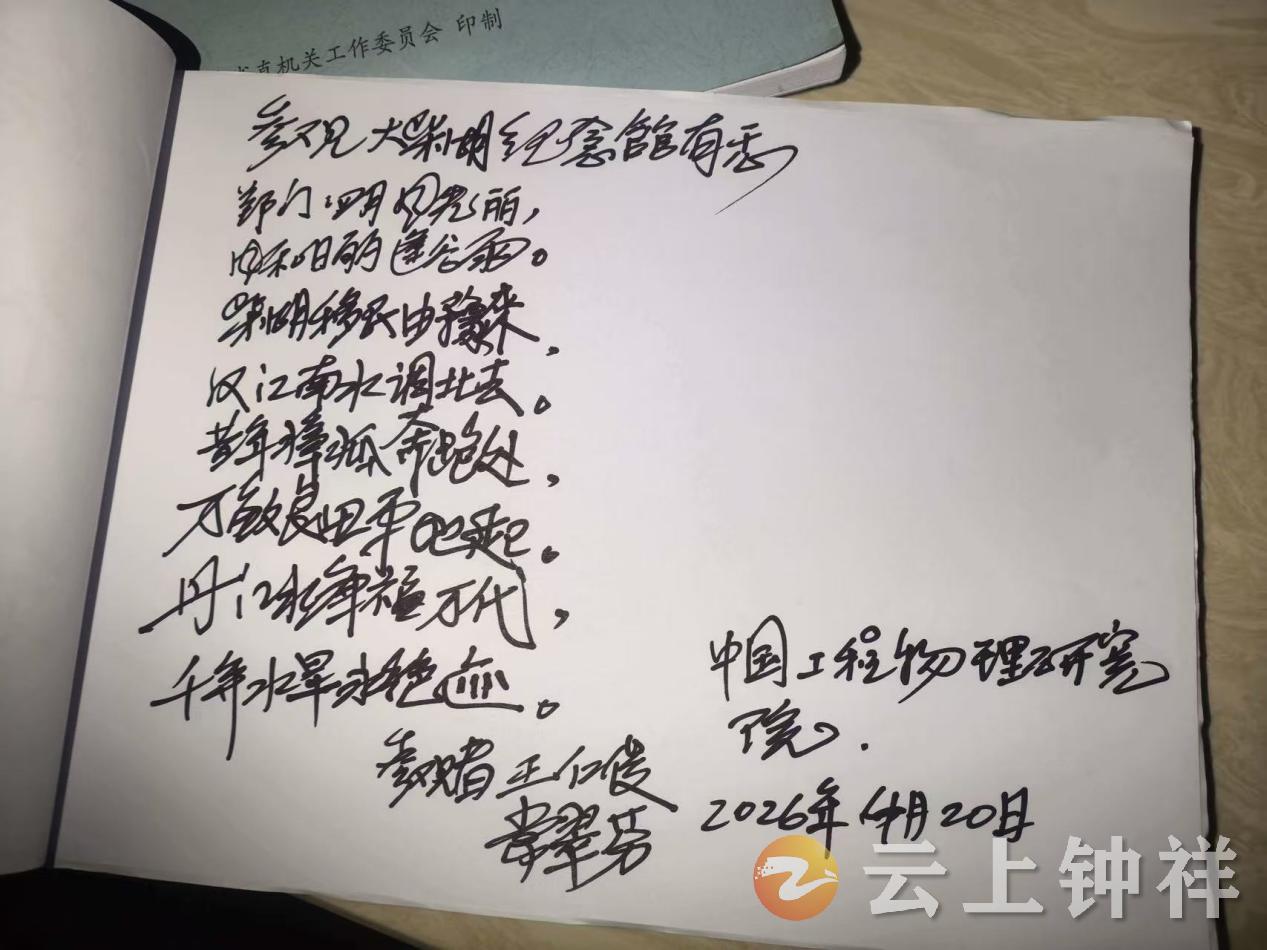 直机关工作委员会 印制
参观大柴湖纪念馆有感
郢门四月风光丽，
风和日丽逢谷雨。
柴湖移民由豫来，
汉江南水调北去。
昔年獐狐奔跑处，
万亩良田平地起。
丹江水库福万代，
千年水旱永绝迹。
参观者 王仁俊
翠芬
中国工程物理研究
院.
2026年4月20日
云上钟祥